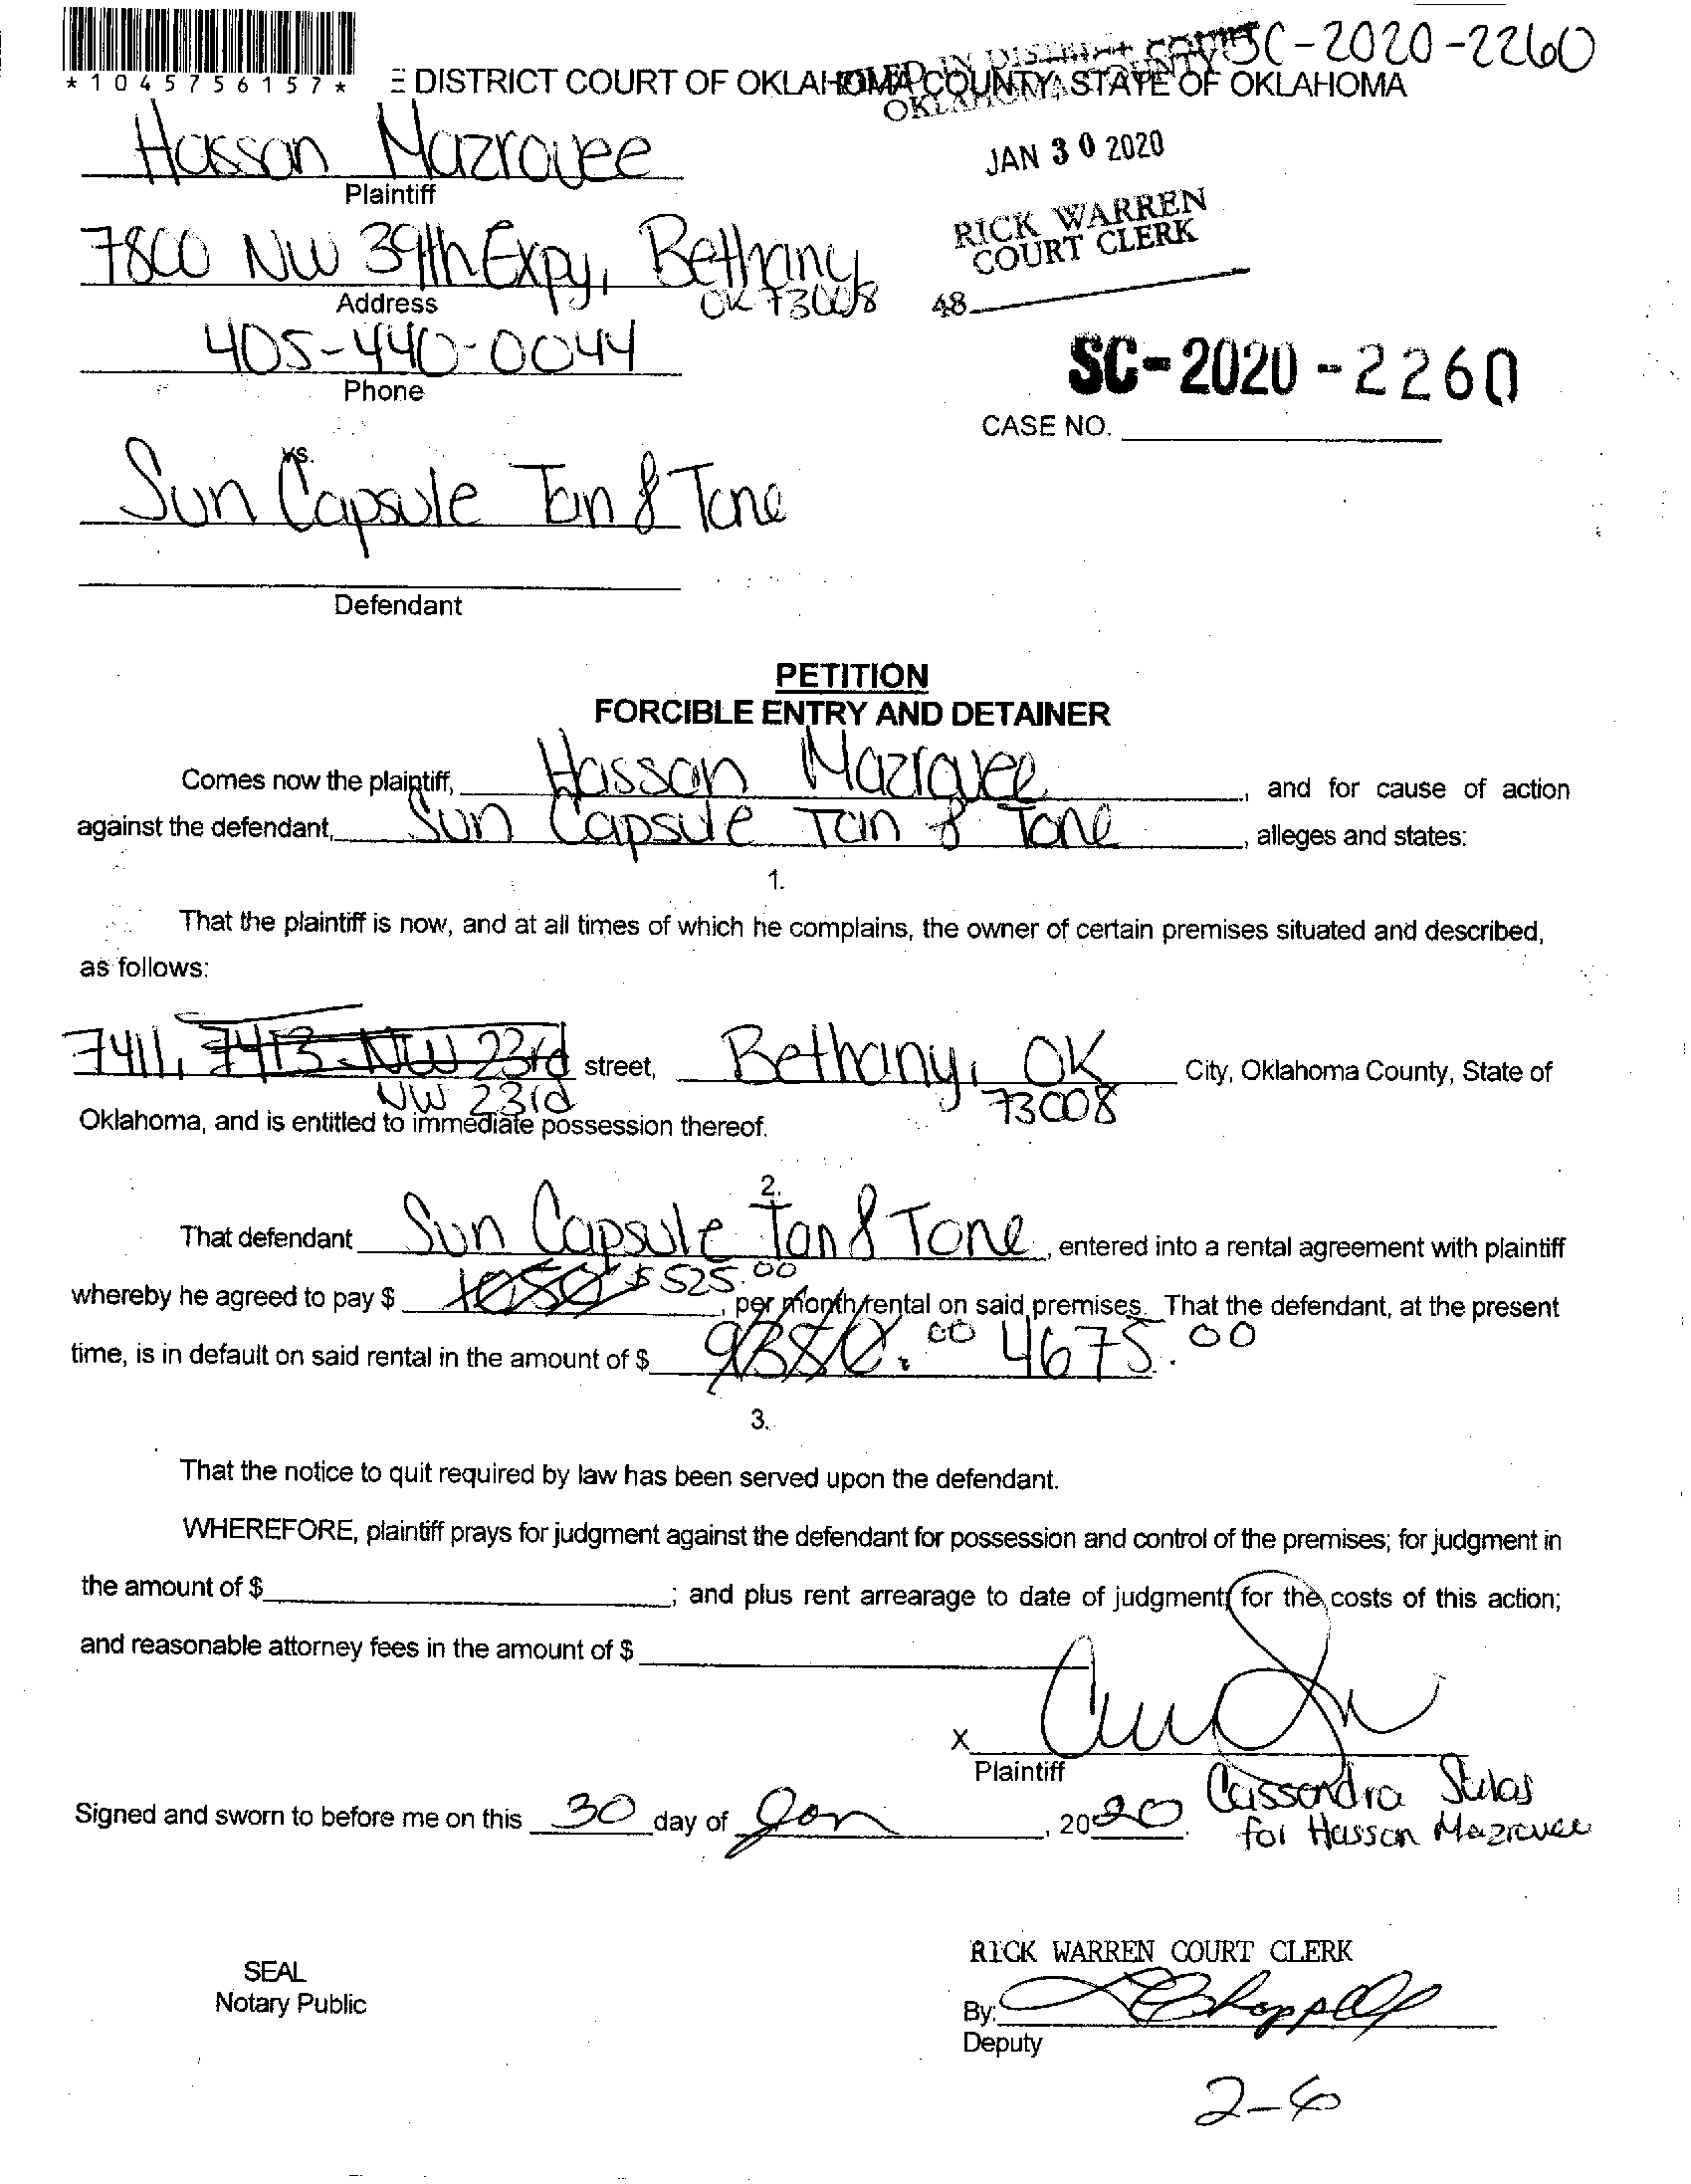 SC-2020-2260
*1045756157* E DISTRICT COURT OF OKLAHOMA COUNTY STATE OF OKLAHOMA
FILED IN DISTRICT COURT
OKLAHOMA COUNTY
JAN 30 2020
RICK WARREN
COURT CLERK
48
Hassan Mazrouee
Plaintiff
7800 NW 39th Expy, Bethany
OK 73008
Address
405-440-0044
Phone
SC-2020-2260
CASE NO.
vs.
Sun Capsule Tan & Tone
Defendant
PETITION
FORCIBLE ENTRY AND DETAINER
Comes now the plaintiff, Hassan Mazrouee, and for cause of action
against the defendant, Sun Capsule Tan & Tone, alleges and states:
1.
That the plaintiff is now, and at all times of which he complains, the owner of certain premises situated and described,
as follows:
7411, 7413 NW 23rd street, Bethany, OK City, Oklahoma County, State of
NW 23rd 73008
Oklahoma, and is entitled to immediate possession thereof.
2.
That defendant Sun Capsule Tan & Tone, entered into a rental agreement with plaintiff
whereby he agreed to pay $ 1050 $525.00, per month rental on said premises. That the defendant, at the present
time, is in default on said rental in the amount of $ 9350.00 4675.00
3.
That the notice to quit required by law has been served upon the defendant.
WHEREFORE, plaintiff prays for judgment against the defendant for possession and control of the premises; for judgment in
the amount of $ ; and plus rent arrearage to date of judgment; for the costs of this action;
and reasonable attorney fees in the amount of $
X
Plaintiff
Cassandra
for Hassan Mazrouee
Signed and sworn to before me on this 30 day of Jan, 2020.
SEAL
Notary Public
RICK WARREN COURT CLERK
By:
Deputy
2-6